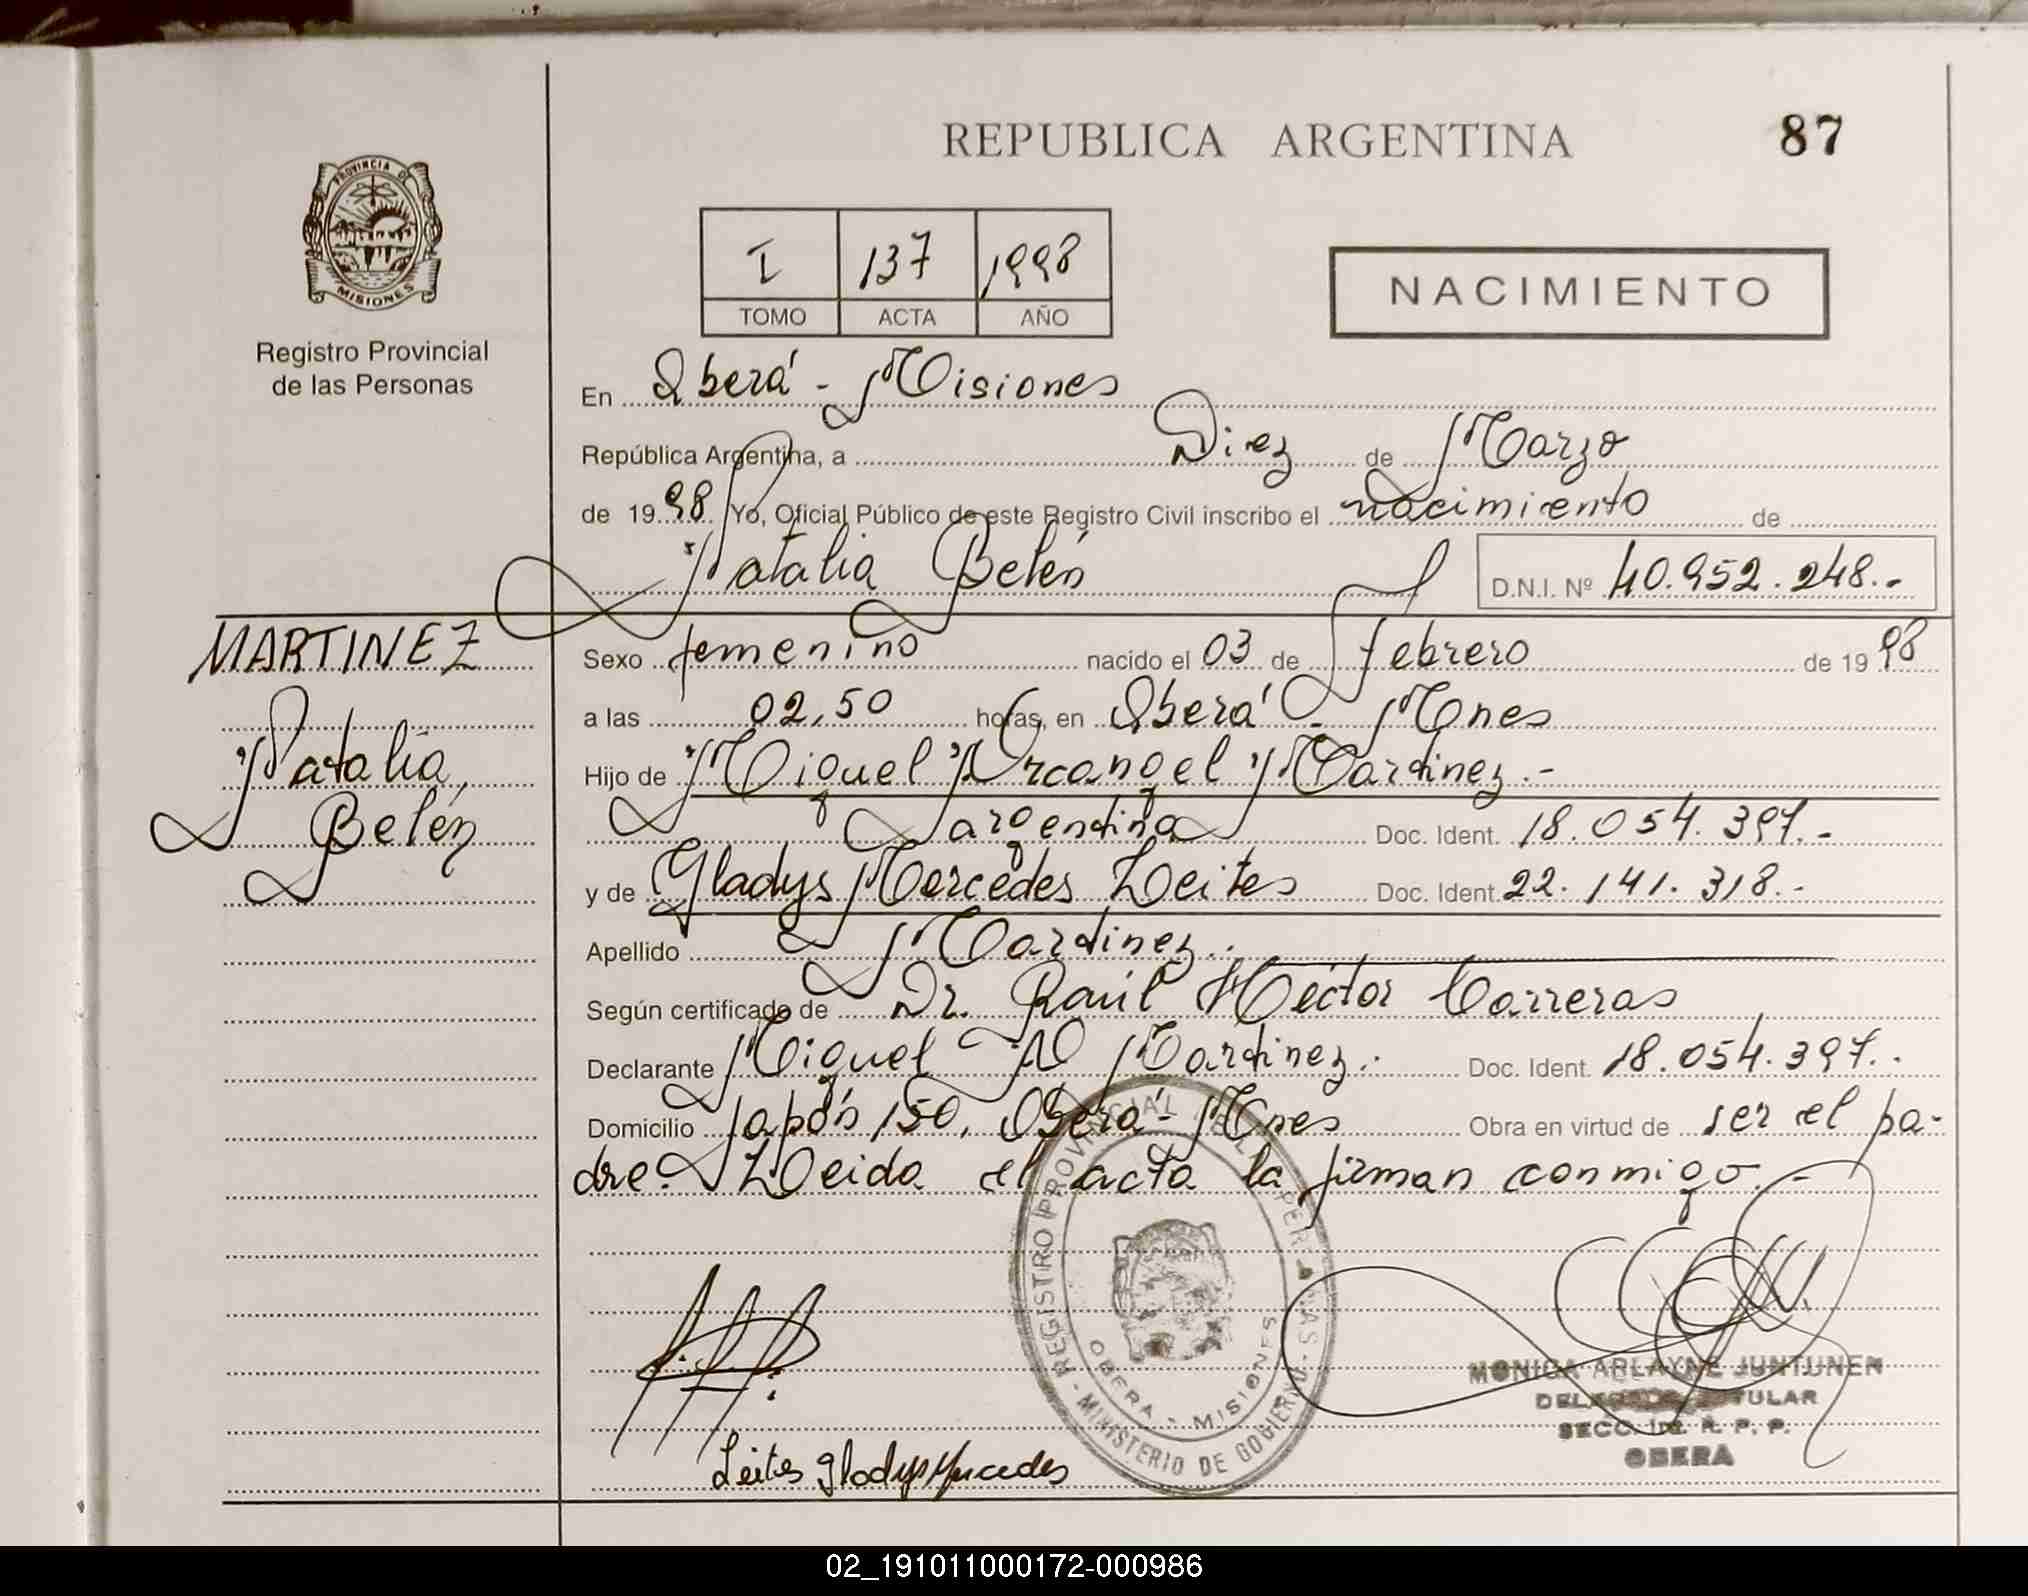 REPUBLICA ARGENTINA
87
PROVINCIA DE
MISIONES
Registro Provincial
de las Personas
I 137 1998
TOMO ACTA AÑO
NACIMIENTO
En Oberá - Misiones
República Argentina, a Diez de Marzo
de 1998 Yo, Oficial Público de este Registro Civil inscribo el nacimiento de
Natalia Belén
D.N.I. Nº 40.952.248.-
MARTINEZ
Natalia
Belén
Sexo femenino nacido el 03 de febrero de 1998
a las 02,50 horas, en Oberá - Mnes
Hijo de Miguel Arcangel Martinez.-
argentina Doc. Ident. 18.054.397.-
y de Gladys Mercedes Leites Doc. Ident. 22.141.318.-
Apellido Martinez.
Según certificado de Dr. Raúl Héctor Carreras
Declarante Miguel A Martinez. Doc. Ident. 18.054.397.-
Domicilio Japón 150, Oberá - Mnes Obra en virtud de ser el pa-
dre. Leida el acta la firman conmigo.-
REGISTRO PROVINCIAL DE LAS PERSONAS
MINISTERIO DE GOBIERNO
OBERA - MISIONES
Leites Gladys Mercedes
MONICA ARLAYNE JUNTUNEN
TULAR
SECC. R. P. P.
OBERA
02_191011000172-000986